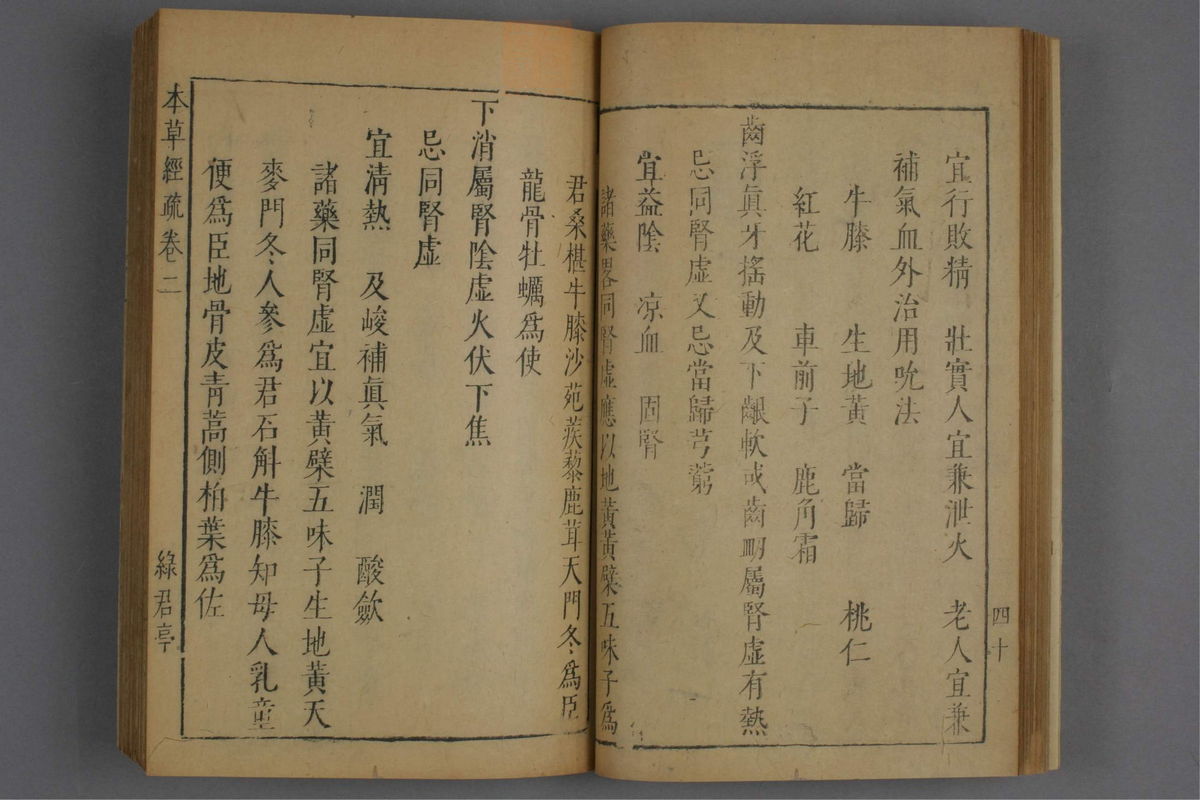 宜行敗精　壯實人宜兼泄火　老人宜兼
補氣血外治用吮法
牛膝　生地黃　當歸　桃仁
紅花　車前子　鹿角霜
齒浮眞牙搖動及下齦軟或齒衂屬腎虛有熱
忌同腎虛又忌當歸芎藭
宜益陰　凉血　固腎
諸藥畧同腎虛應以地黃黃檗五味子爲
四十
君桑椹牛膝沙苑蒺藜鹿茸天門冬爲臣
龍骨牡蠣爲使
下消屬腎陰虛火伏下焦
忌同腎虛
宜清熱　及峻補眞氣　潤　酸歛
諸藥同腎虛宜以黃檗五味子生地黃天
麥門冬人參爲君石斛牛膝知母人乳童
便爲臣地骨皮靑蒿側柏葉爲佐
本草經疏卷二
綠君亭